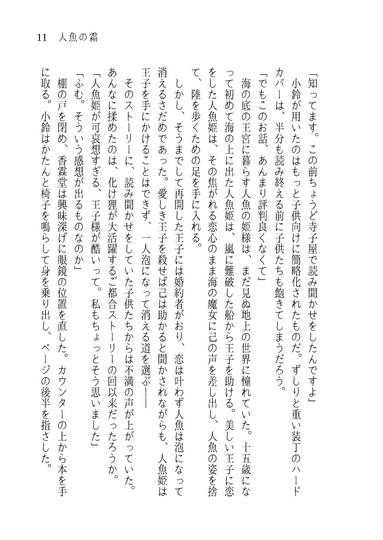 11　人魚の霜
「知ってます。この前ちょうど寺子屋で読み聞かせをしたんですよ」
　小鈴が用いたのはもっと子供向けに簡略化されたものだ。ずしりと重い装丁のハード
カバーは、半分も読み終える前に子供たちも飽きてしまうだろう。
「でもこのお話、あんまり評判良くなくて」
　海の底の王宮に暮らす人魚の姫様は、まだ見ぬ地上の世界に憧れていた。十五歳にな
って初めて海の上に出た人魚姫は、嵐に難破した船から王子を助ける。美しい王子に恋
をした人魚姫は、その焦がれる恋心のまま海の魔女に己の声を差し出し、人魚の姿を捨
て、陸を歩くための足を手に入れる。
　しかし、そうまでして再開した王子には婚約者がおり、恋は叶わず人魚は泡になって
消えるさだめであった。愛しき王子を殺せば己は助かると聞かされながらも、人魚姫は
王子を手にかけることはできず、一人泡になって消える道を選ぶ――
　そのストーリーに、読み聞かせをしていた子供たちからは不満の声が上がっていた。
あんなに揉めたのは、化け狸が大活躍するご都合ストーリーの回以来だったろうか。
「人魚姫が可哀想すぎる、王子様が酷いって。私もちょっとそう思いました」
「ふむ。そういう感想が出るものなのか」
　棚の戸を閉め、香霖堂は興味深げに眼鏡の位置を直した。カウンターの上から本を手
に取る。小鈴はかたんと椅子を鳴らして身を乗り出し、ページの後半を指さした。